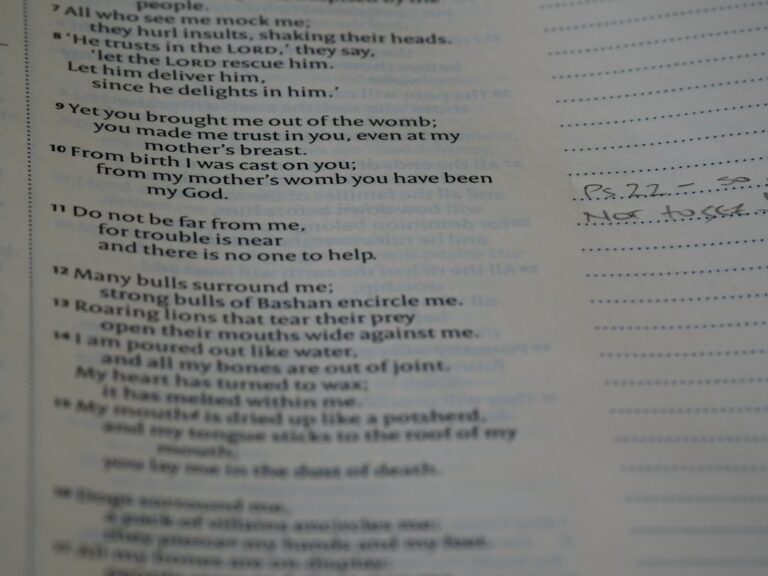 people.
7 All who see me mock me;
they hurl insults, shaking their heads.
8 ‘He trusts in the LORD,’ they say,
‘let the LORD rescue him.
Let him deliver him,
since he delights in him.’
9 Yet you brought me out of the womb;
you made me trust in you, even at my
mother’s breast.
10 From birth I was cast on you;
from my mother’s womb you have been
my God.
11 Do not be far from me,
for trouble is near
and there is no one to help.
12 Many bulls surround me;
strong bulls of Bashan encircle me.
13 Roaring lions that tear their prey
open their mouths wide against me.
14 I am poured out like water,
and all my bones are out of joint.
My heart has turned to wax;
it has melted within me.
15 My mouth is dried up like a potsherd,
and my tongue sticks to the roof of my
mouth;
you lay me in the dust of death.
16 Dogs surround me,
a pack of villains encircles me;
they pierce my hands and my feet.
17 All my bones are on display;
Ps 22 - so
Not